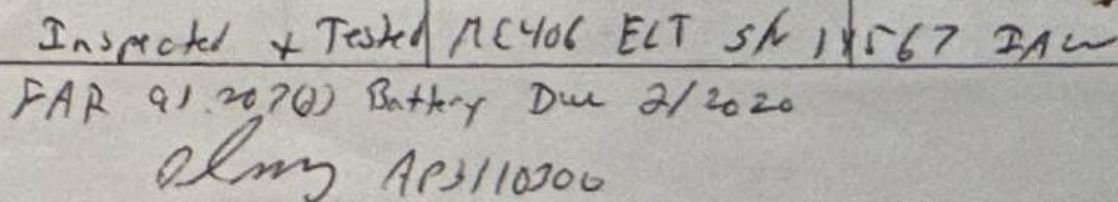 Inspected + Tested ME406 ELT S/N 14567 IAW
FAR 91.207(d) Battery Due 2/2020
AP3110300